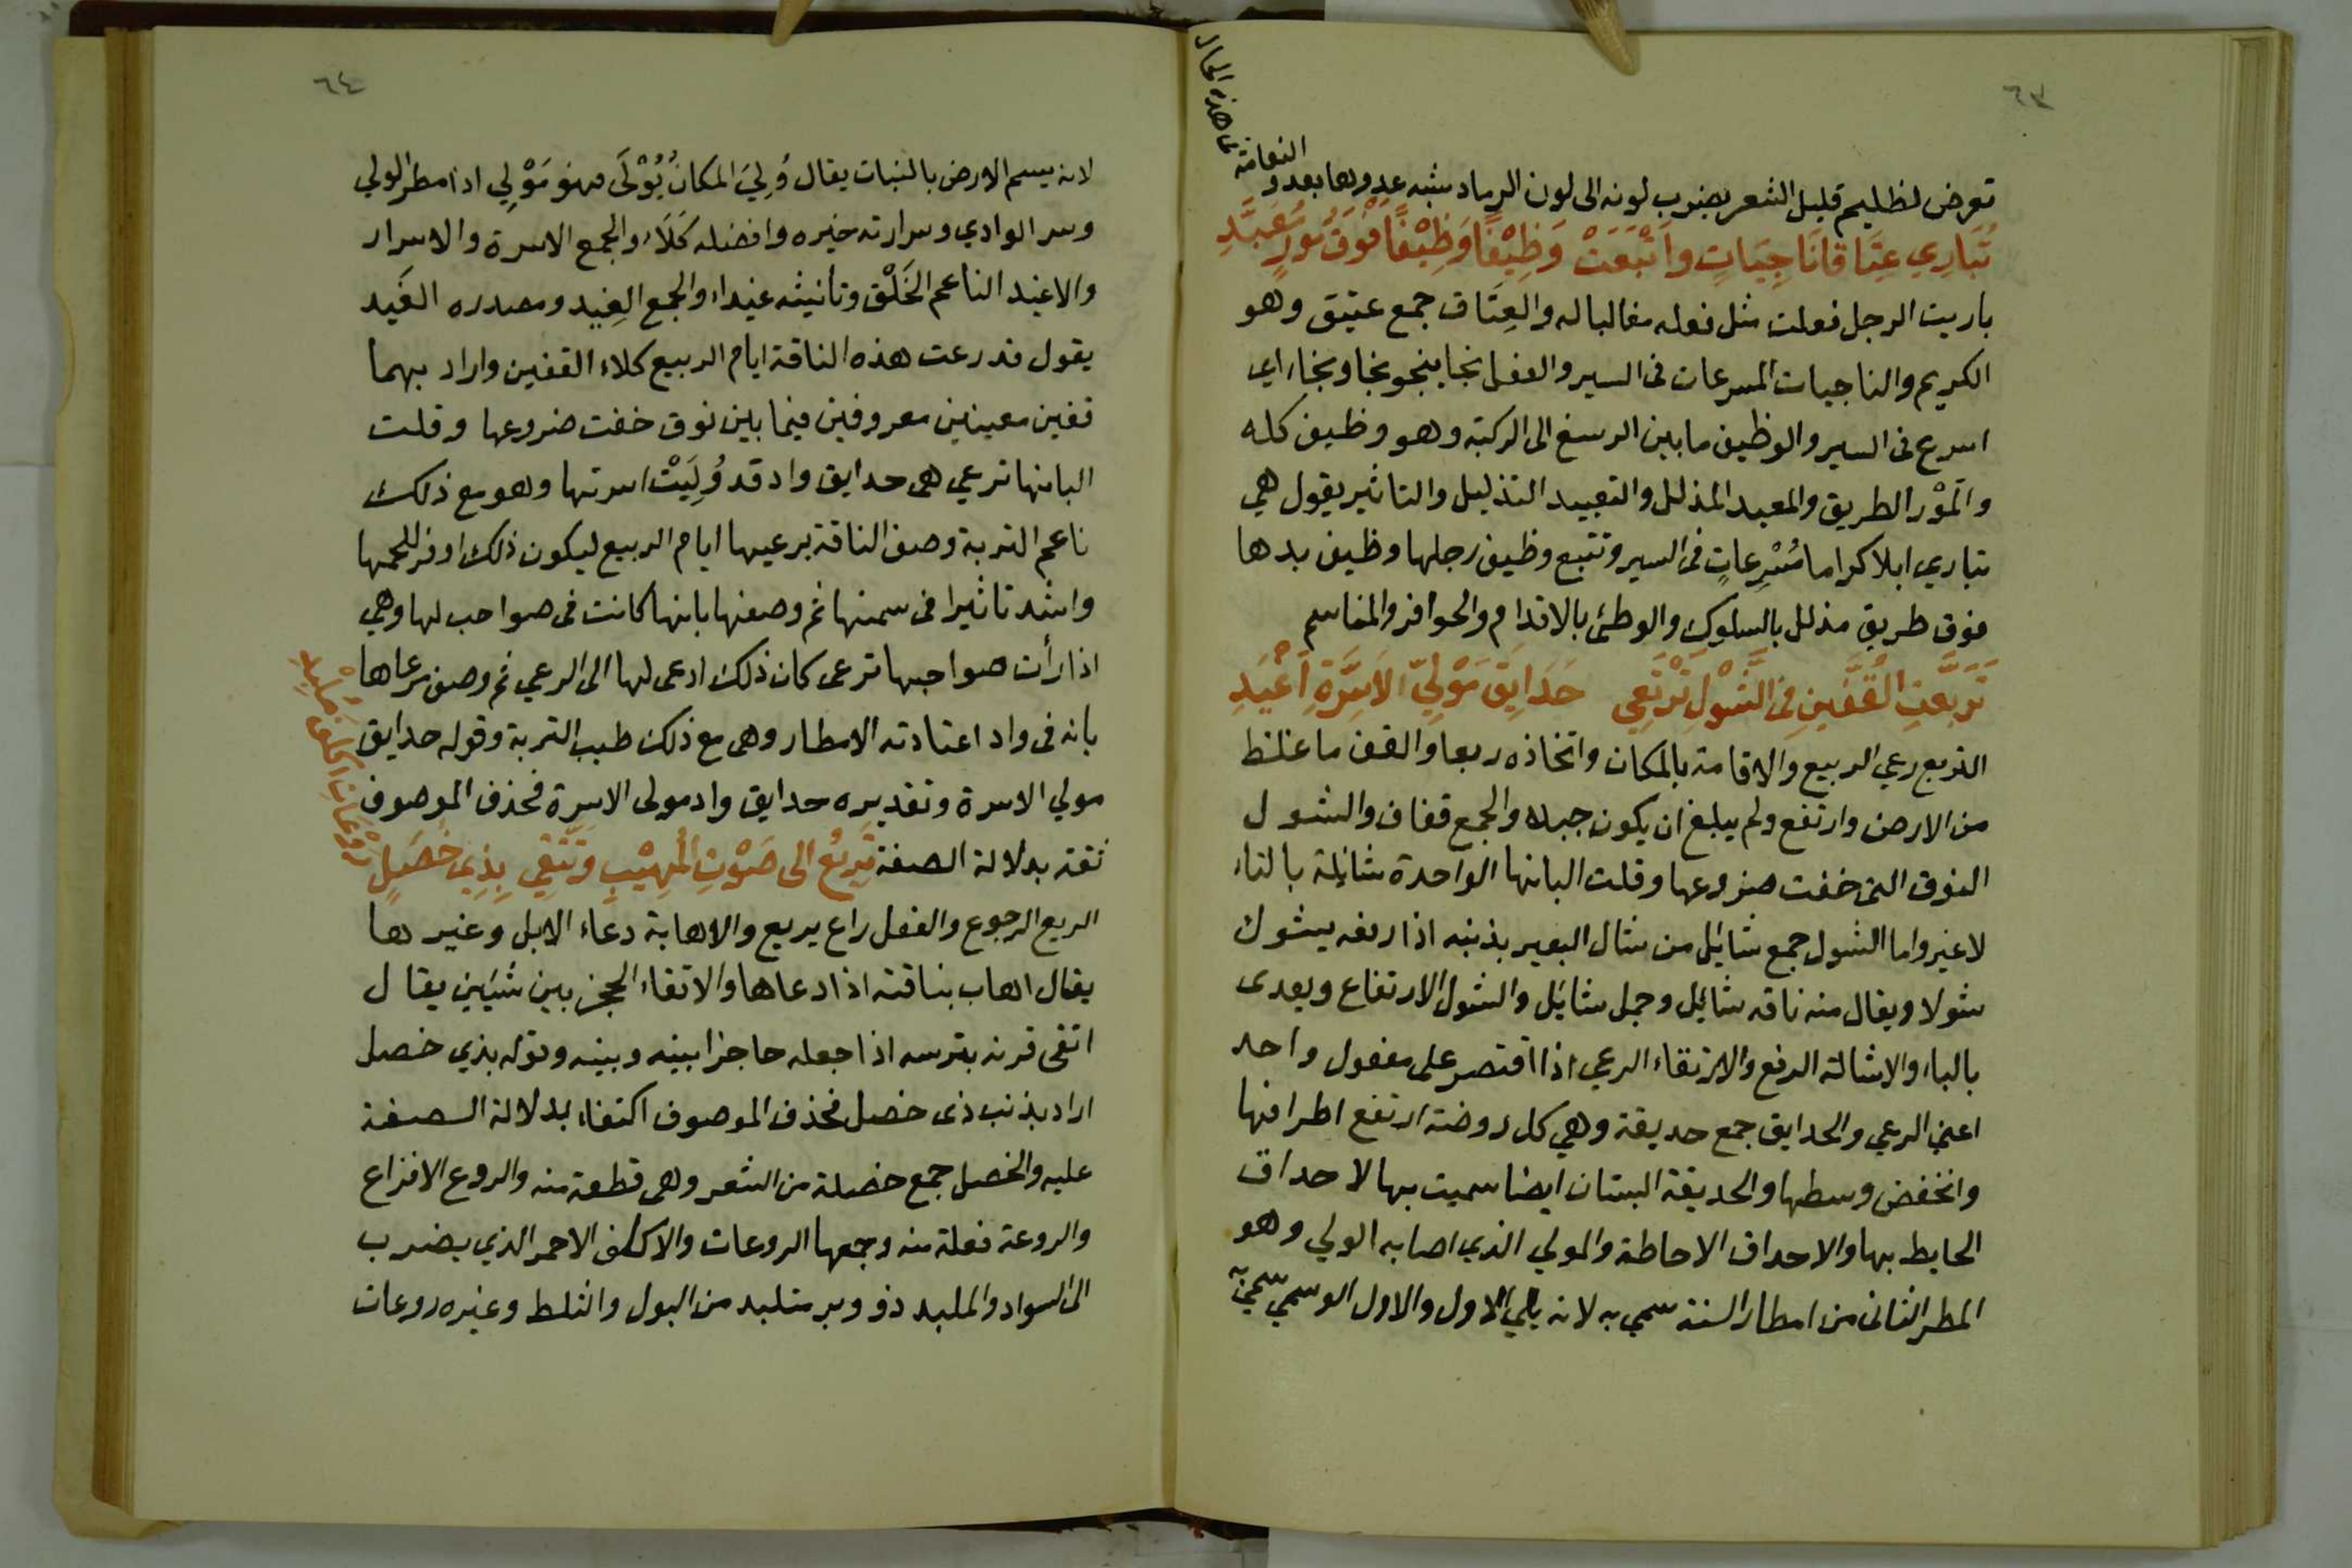 ٦٣
تعرض لظليم قليل الشعر يضرب لونه الى لون الرماد شبه عدوها بعدو
النعامة
فى هذه الحال
تُبَارِي عِتَاقًا نَاجِيَاتٍ واَتْبَعَتْ وَظِيْفًا وَظِيْفًا فَوْقَ مَوْرٍ مُعَبَّدِ
باريت الرجل فعلت مثل فعله مغالبا له والعِتَاق جمع عتيق وهو
الكريم والناجيات المسرعات فى السير والفعل نجا ينجو نجا ونجاء اي
اسرع فى السير والوظيف ما بين الرسغ الى الركبة وهو وظيف كله
والمَوْر الطريق والمعبد المذلل والتعبيد التذليل والتاثير يقول هي
تباري ابلا كراما مُسْرِعاتٍ فى السير وتتبع وظيف رجلها وظيف يدها
فوق طريق مذلل بالسلوك والوطئ بالاقدام والحوافر والمناسم
تَرَبَّعَتِ القُفَّينِ فِى الشَّوْلِ تَرْتَعِي حَدَايِقَ مَوْلِيّ الاَسِرَّةِ اَغْيَدِ
التربع رعي الربيع والاقامة بالمكان واتخاذه ربعا والقف ما غلظ
من الارض وارتفع ولم يبلغ ان يكون جبلا والجمع قفاف والشول
النوق التى خفت ضروعها وقلت البانها الواحدة شائلة بالتاء
لا غير واما الشول جمع شايل من شال البعير بذنبه اذا رفعه يشول
شولا ويقال منه ناقه شايل وجمل شايل والشول الارتفاع ويعدى
بالباء والاشالة الرفع والارتقاء الرعي اذا اقتصر على مفعول واحد
اعني الرعي والحدايق جمع حديقة وهي كل روضة ارتفع اطرافها
وانخفض وسطها والحديقة البستان ايضا سميت بها لاحداق
الحايط بها والاحداق الاحاطة والمولي الذي اصابه الولي وهو
المطر الثانى من امطار السنة سمي به لانه يلي الاول والاول الوسمي سمي به
٦٤
لانه يسم الارض بالنبات يقال وُلِيَ المكانُ يُوْلَى فهو مَوْلِي اذا مطر الولي
وسر الوادي وسرارته خيره وافضله كَلَاً، والجمع الاسرة والاسرار
والاغيد الناعم الخَلْق وتانيثه غيداء والجمع الغِيد ومصدره الغَيَد
يقول قد رعت هذه الناقة ايام الربيع كلاء القفين واراد بهما
قفين معينين معروفين فيما بين نوق خفت ضروعها وقلت
البانها ترعي هى حدايق واد قد وُلِيَتْ اسرتها وهو مع ذلك
ناعم التربة وصف الناقة برعيها ايام الربيع ليكون ذلك اوفر للحمها
واشد تاثيرا فى سمنها ثم وصفها بانها كانت فى صواحب لها وهي
اذا رأت صواحبها ترعى كان ذلك ادعى لها الى الرعي ثم وصف مرعاها
بانه فى واد اعتادته الامطار وهى مع ذلك طيب التربة وقوله حدايق
مولي الاسرة وتقديره حدايق واد مولى الاسرة فحذف الموصوف
ثقة بدلالة الصفة تَرِيْعُ الى صَوْتِ المُهِيْبِ وَتَتَّقِي بِذِي خُصَلٍ
رَوْعَاتِ اكلَفَ مُلْبِدِ
الريع الرجوع والفعل راع يريع والاهابة دعاء الابل وغيرها
يقال اهاب بناقته اذا دعاها والاتقاء الحجز بين شيئين يقال
اتقى قرنه بترسه اذا جعله حاجزا بينه وبينه وقوله بذي خصل
اراد بذنب ذى خصل فحذف الموصوف اكتفاء بدلالة الصفة
عليه والخصل جمع خصلة من الشعر وهى قطعة منه والروع الافزاع
والروعة فعلة منه وجمعها الروعات والاكلف الاحمر الذي يضرب
الى السواد والملبد ذو وبر متلبد من البول والثلط وغيره روعات